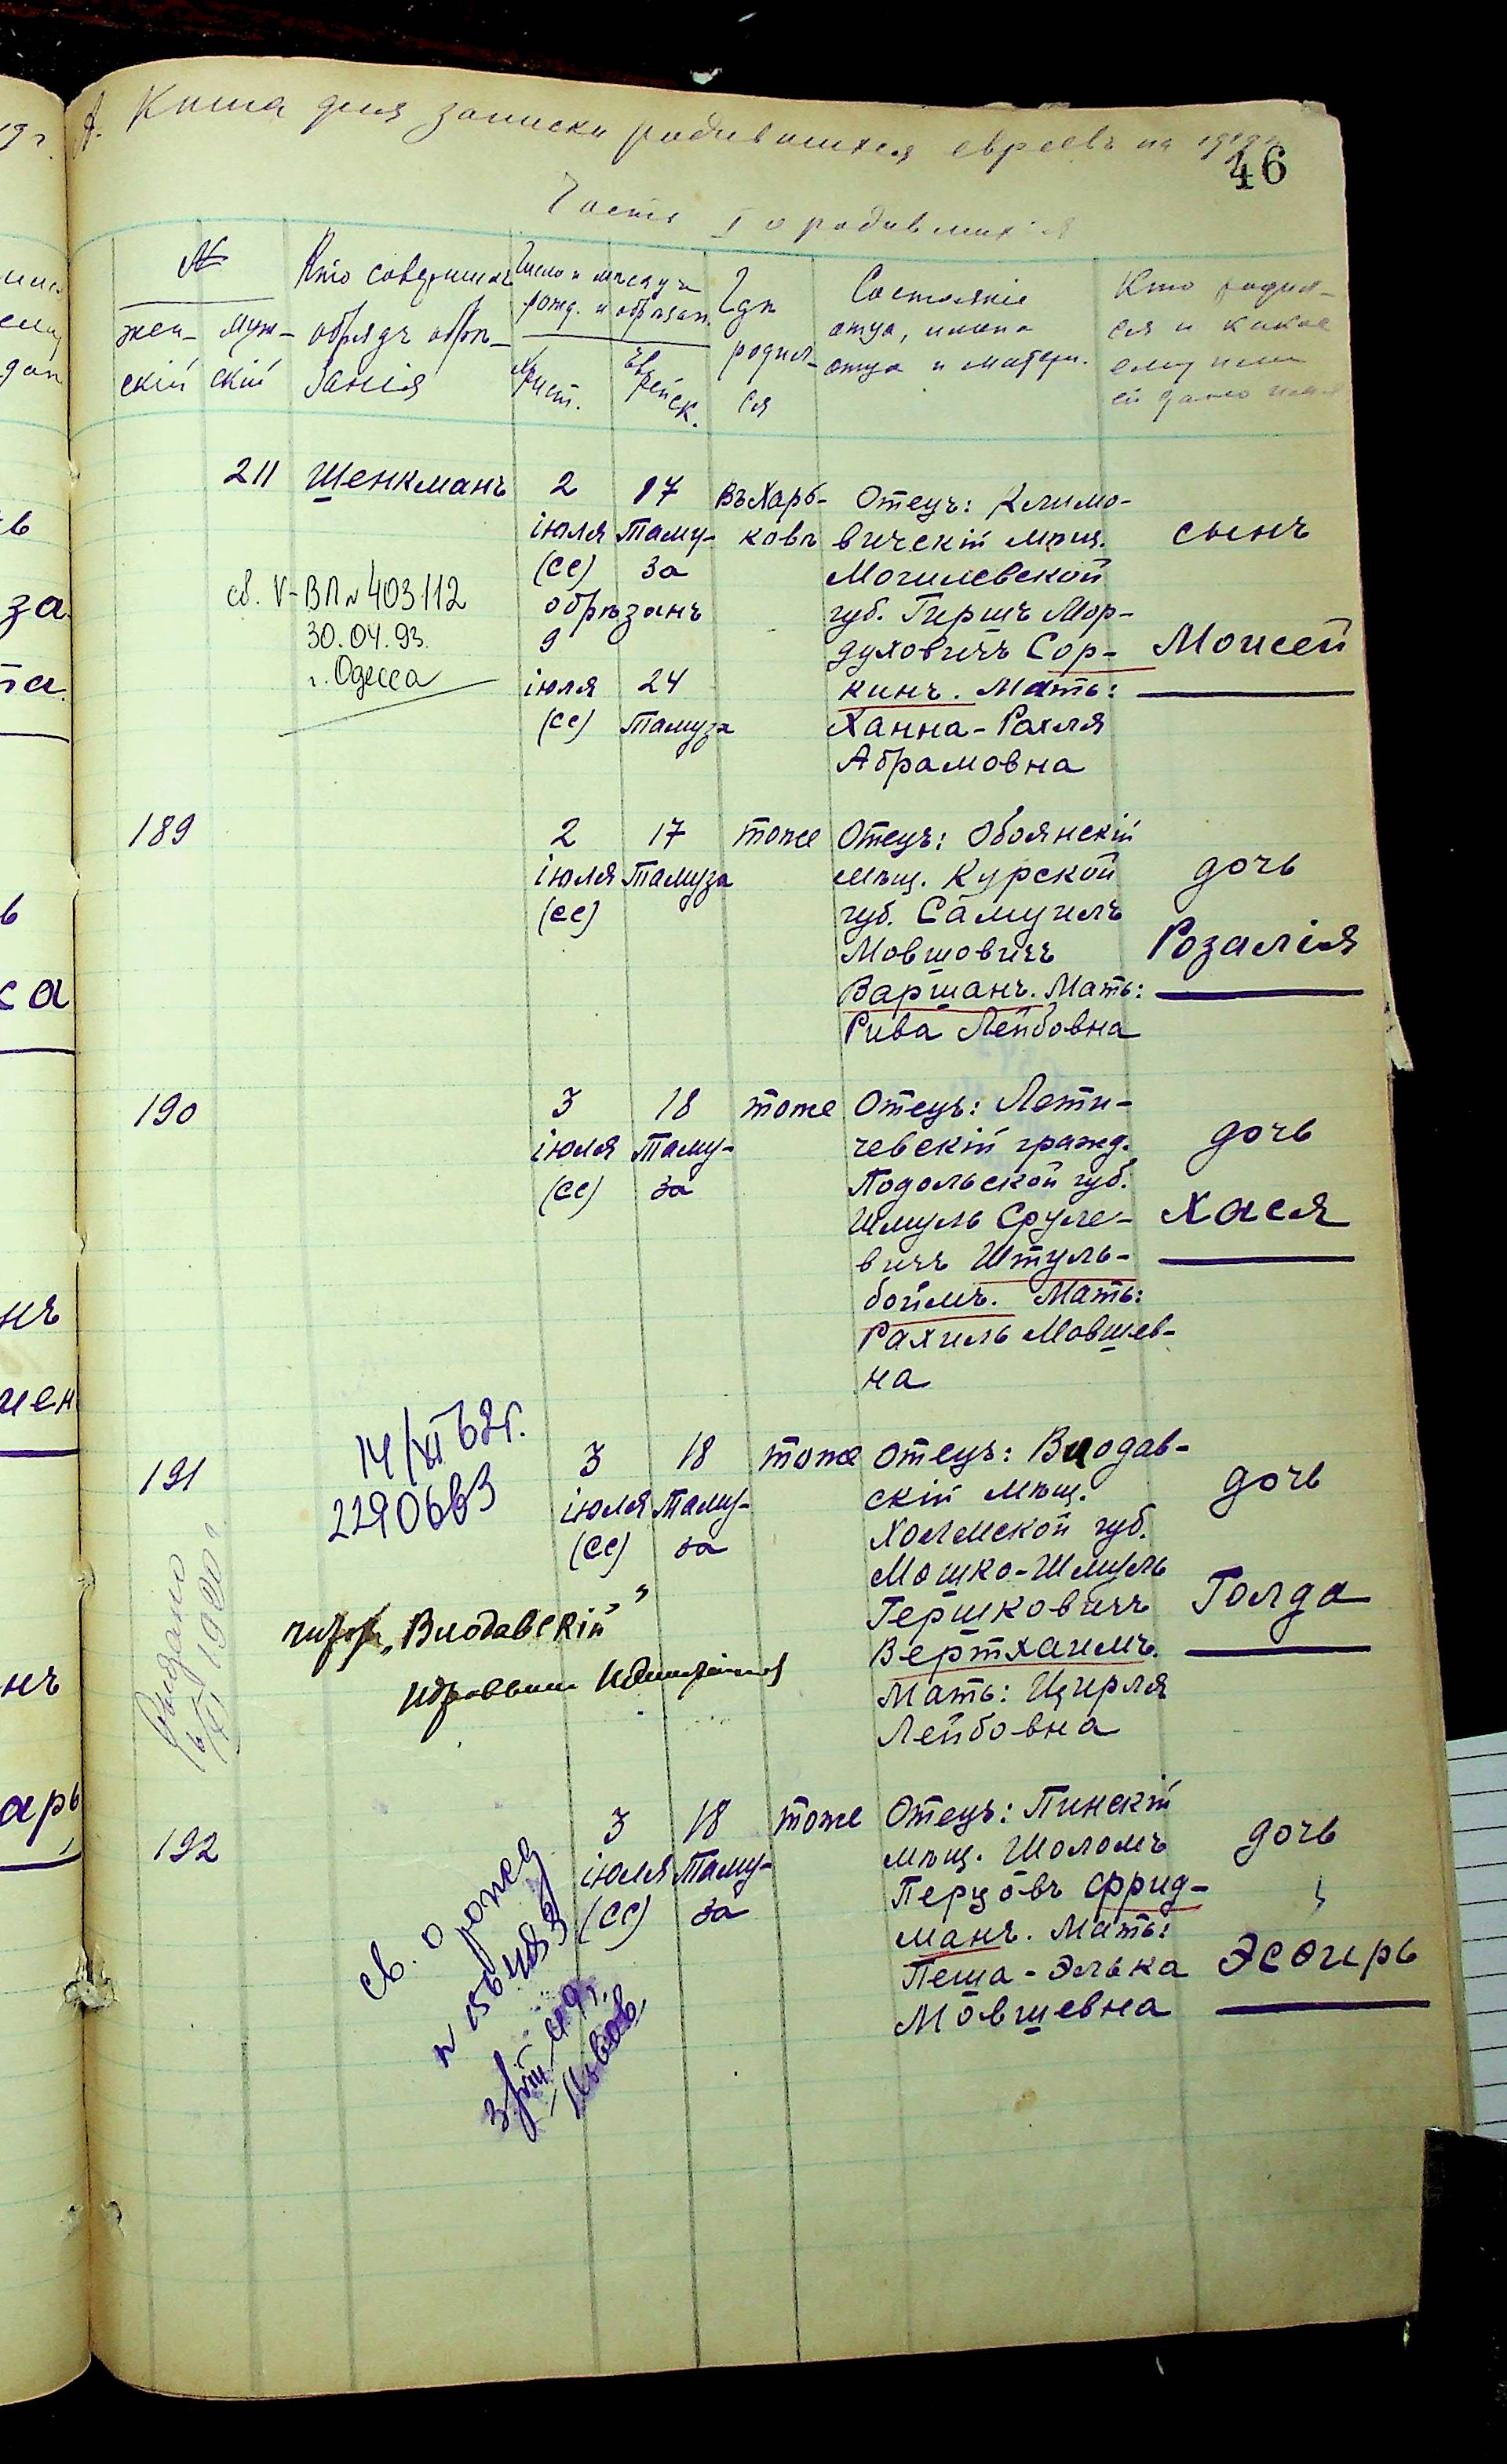 А. Книга для записки родившихся евреевъ на 1919 г.
46
Часть I о родившихся
№
жен- муж-
скій скій
Кто совершилъ
обрядъ обрѣ-
занія
Число и мѣсяцъ
рожд. и обрѣзан.
Христ.
Ев-
рейск.
Гдѣ
родил-
ся
Состояніе
отца, имена
отца и матери.
Кто родил-
ся и какое
ему или
ей дано имя
211 Шенкманъ
2
іюля
(сс)
обрѣзанъ
9
іюля
(сс)
17
Таму-
за
24
Тамуза
въ Харь-
ковѣ
Отецъ: Климо-
вичскій мѣщ.
Могилевской
губ. Гиршъ Мор-
духовичъ Сор-
кинъ. Мать:
Ханна-Рахля
Абрамовна
сынъ
Моисей
св. V-ВЛ № 403112
30.04.93.
г. Одесса
189
2
іюля
(сс)
17
Тамуза
тоже
Отецъ: Обоянскій
мѣщ. Курской
губ. Самуилъ
Мовшовичъ
Варшанъ. Мать:
Рива Лейбовна
дочь
Розалія
190
3
іюля
(сс)
18
Таму-
за
тоже
Отецъ: Лети-
чевскій гражд.
Подольской губ.
Шмуль Сруле-
вичъ Штуль-
боймъ. Мать:
Рахиль Мовшев-
на
дочь
Хася
191
14/XI 62г.
2290663
3
іюля
(сс)
18
Таму-
за
тоже
Отецъ: Влодав-
скій мѣщ.
Холмской губ.
Мошко-Шмуль
Гершковичъ
Вертхаимъ.
Мать: Цирля
Лейбовна
дочь
Голда
Выдано
1920 г.
„Влодавскій"
192
3
іюля
(сс)
18
Таму-
за
тоже
Отецъ: Пинскій
мѣщ. Шоломъ
Перцовъ Фрид-
манъ. Мать:
Пеша-Элька
Мовшевна
дочь
Эсѳирь
св. о рожд
3/VIII 49г.
г. Львов